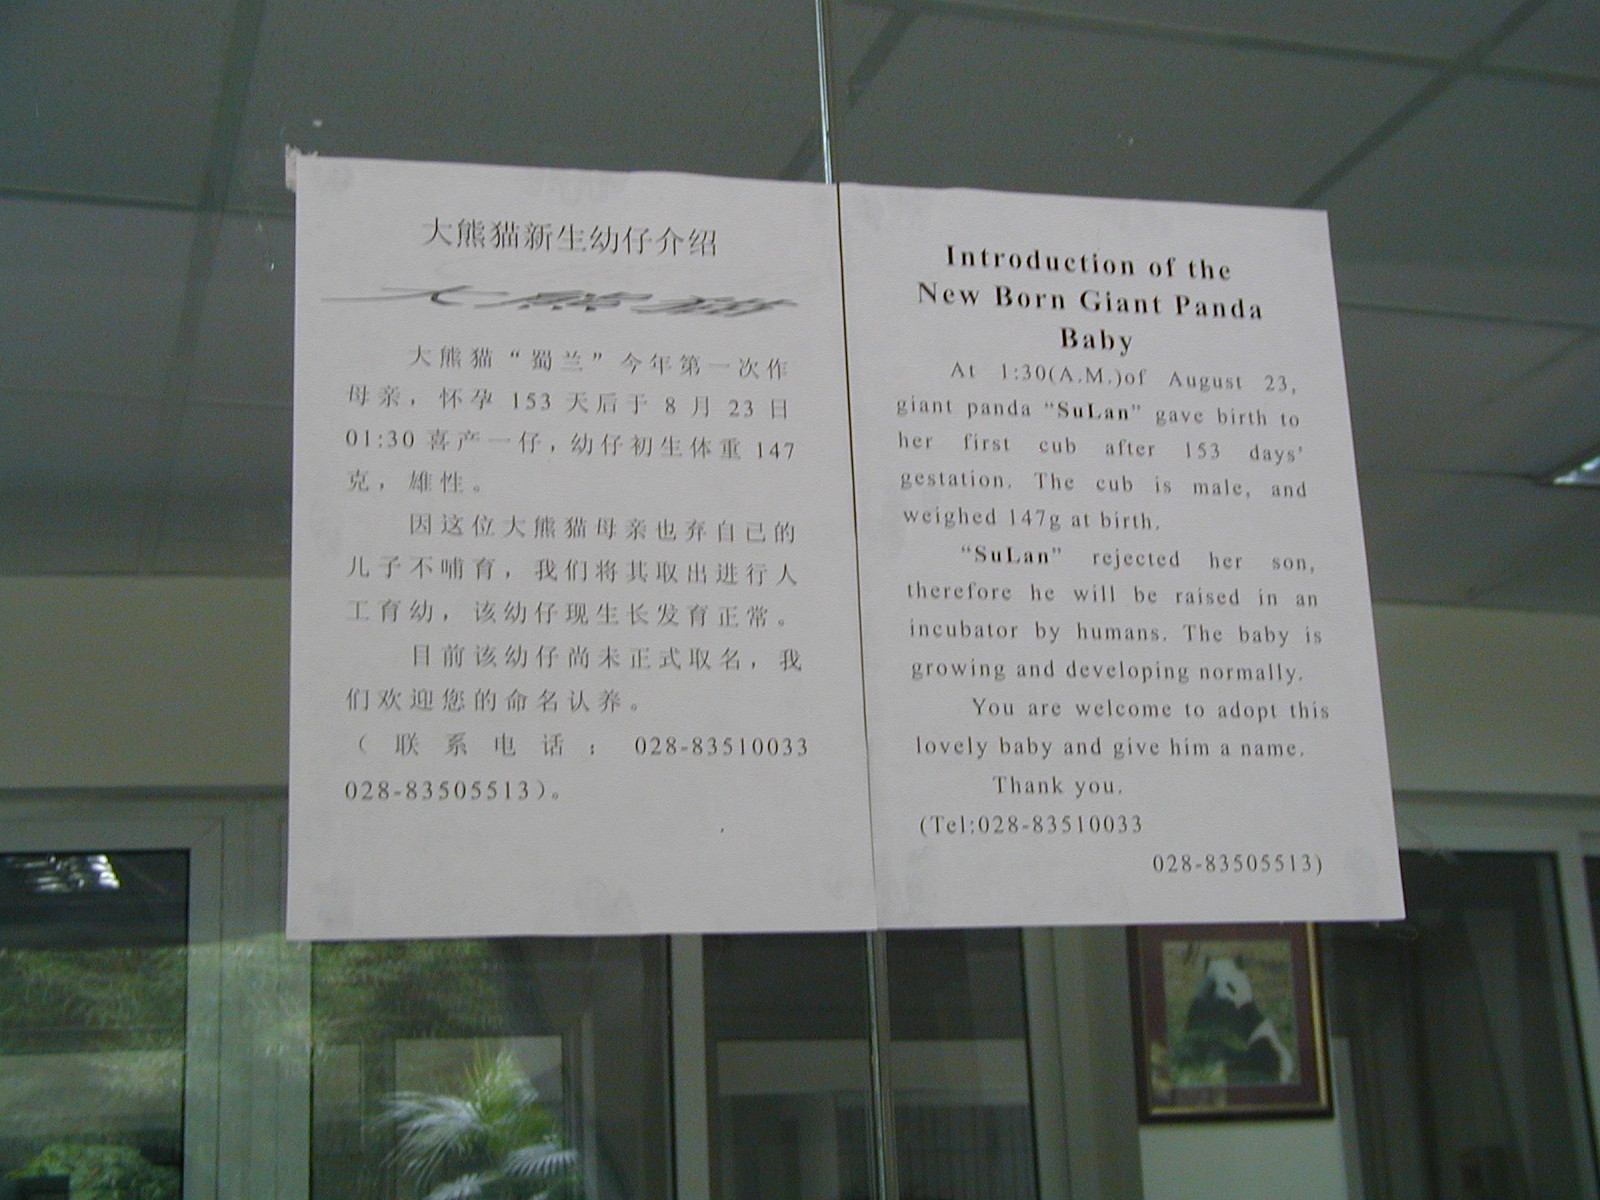 大熊猫新生幼仔介绍
大熊猫
大熊猫“蜀兰”今年第一次作
母亲，怀孕 153 天后于 8 月 23 日
01:30 喜产一仔，幼仔初生体重 147
克，雄性。
因这位大熊猫母亲也弃自己的
儿子不哺育，我们将其取出进行人
工育幼，该幼仔现生长发育正常。
目前该幼仔尚未正式取名，我
们欢迎您的命名认养。
（联系电话：028-83510033
028-83505513）。
Introduction of the
New Born Giant Panda
Baby
At 1:30(A.M.)of August 23,
giant panda “SuLan” gave birth to
her first cub after 153 days’
gestation. The cub is male, and
weighed 147g at birth.
“SuLan” rejected her son,
therefore he will be raised in an
incubator by humans. The baby is
growing and developing normally.
You are welcome to adopt this
lovely baby and give him a name.
Thank you.
(Tel:028-83510033
028-83505513)